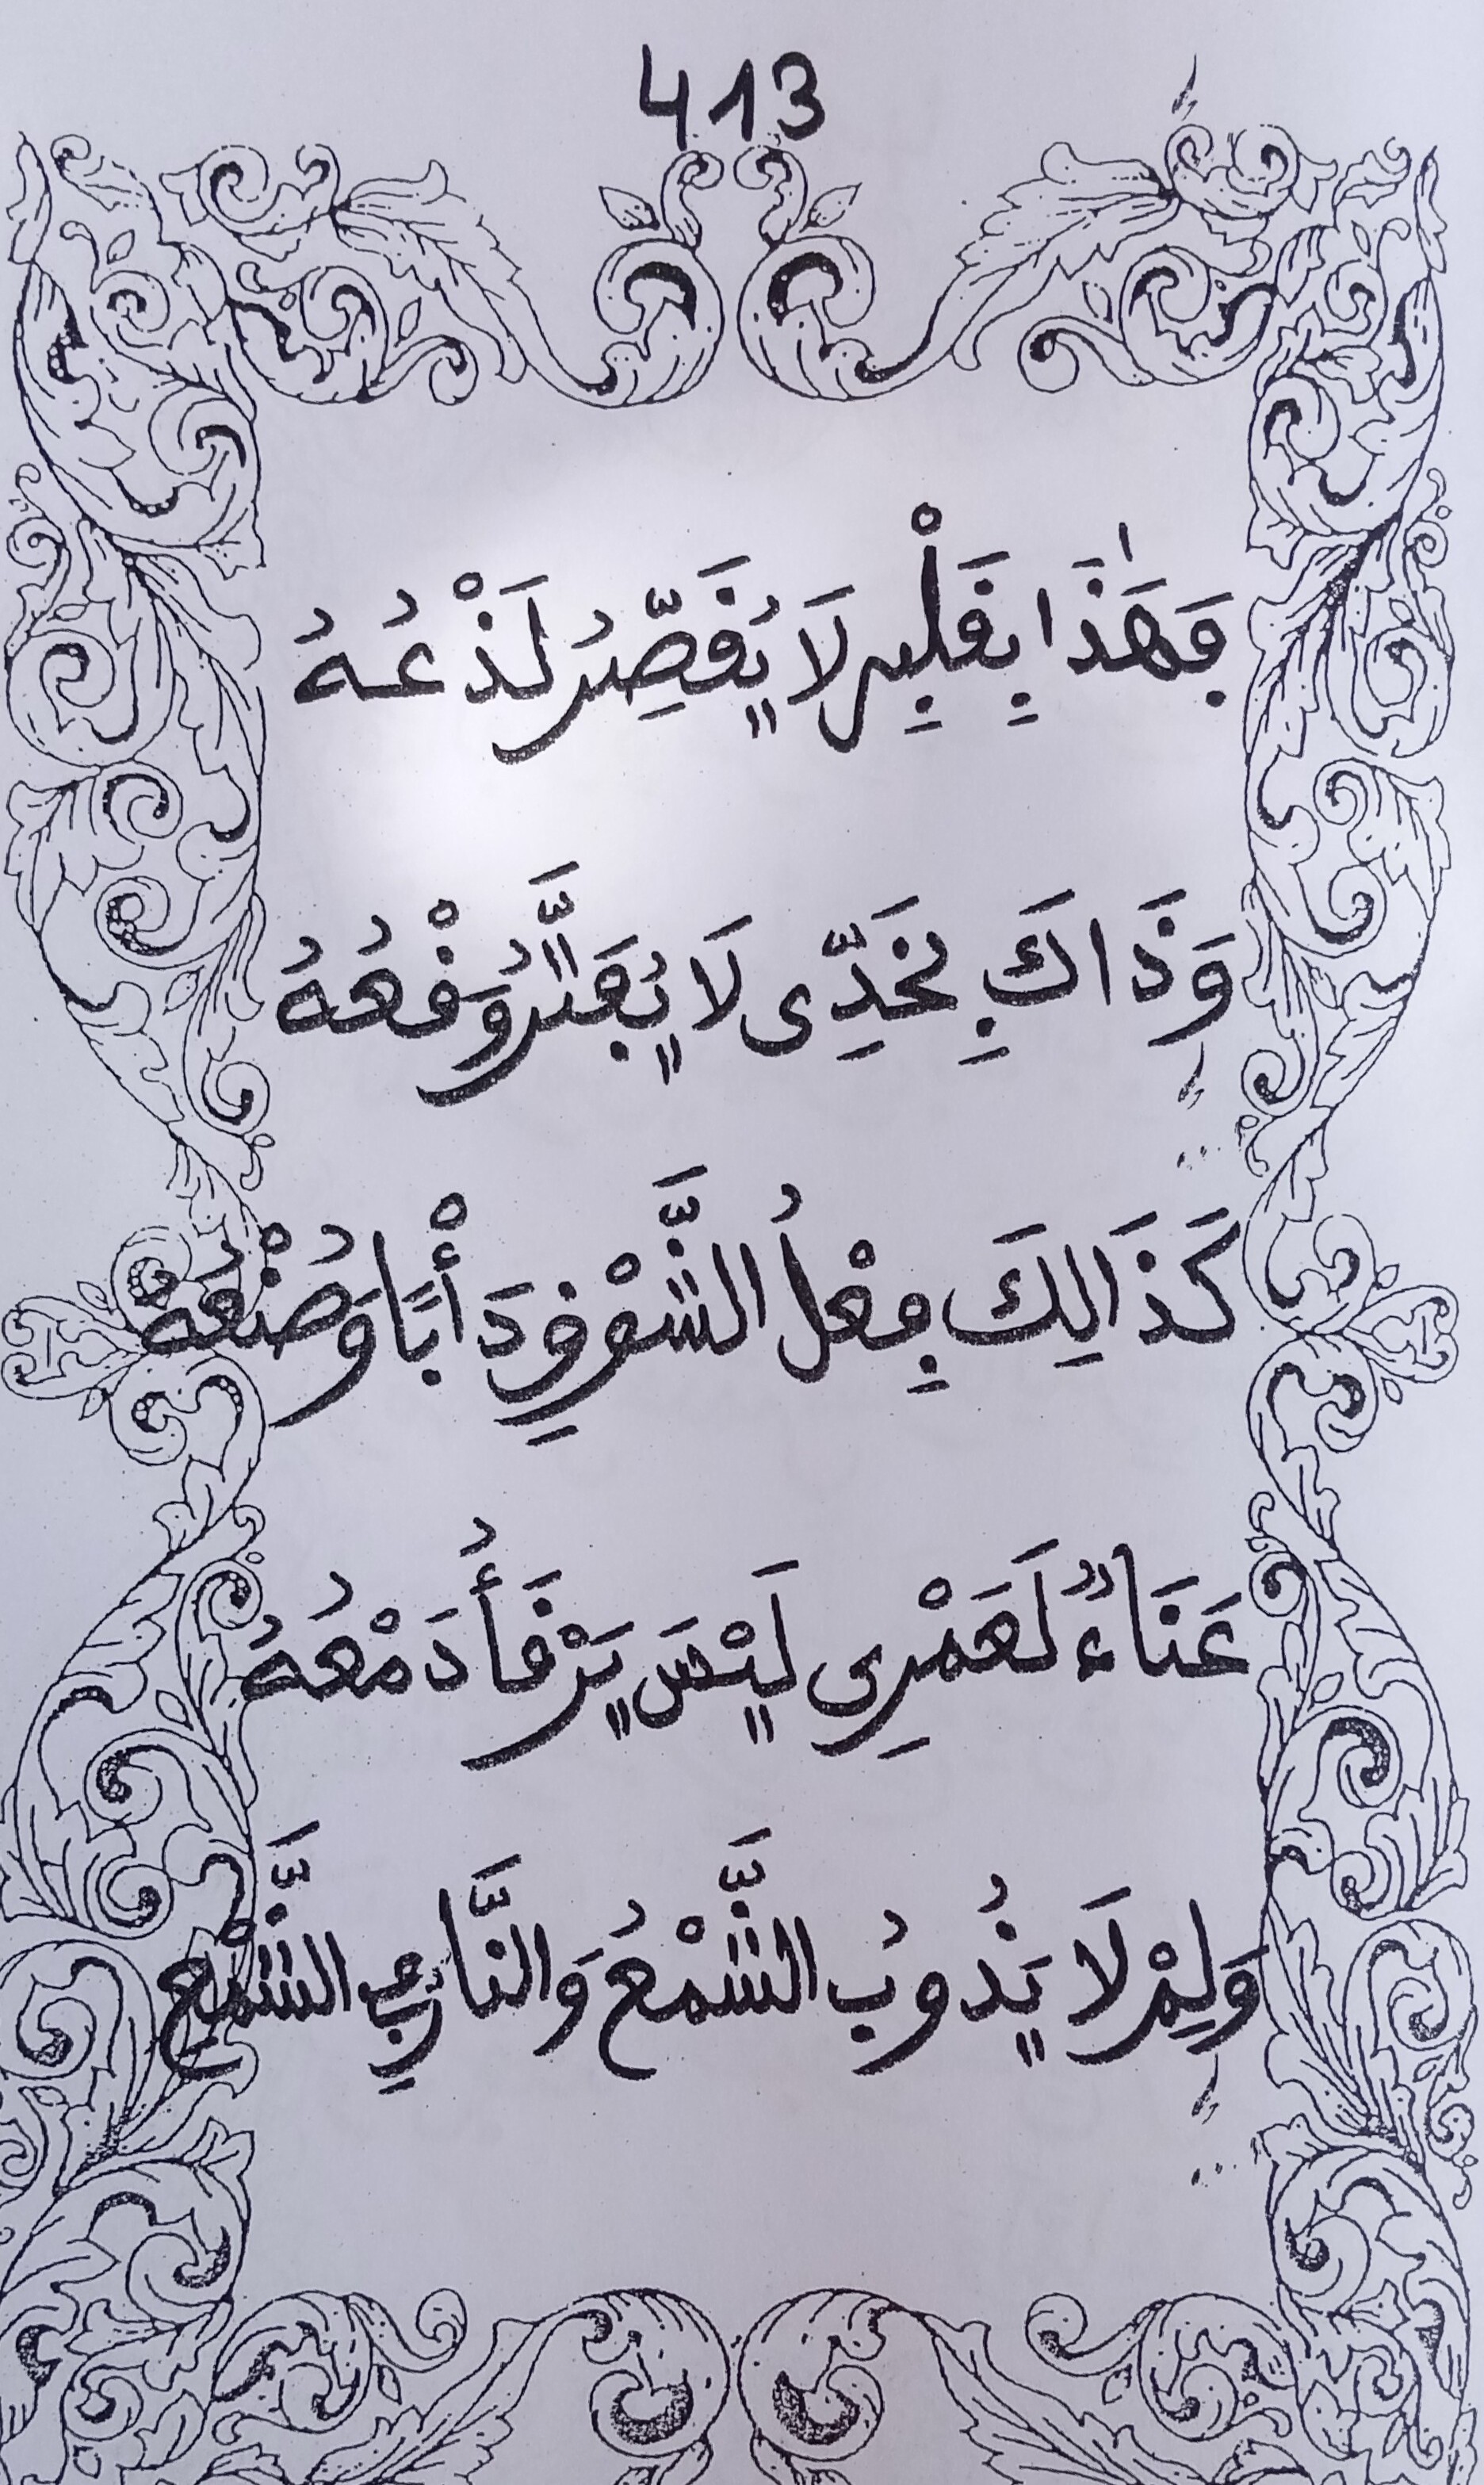 413
فَهَٰذَا بِقَلْبِي لَا يُقَصِّرُ لَذْعُهُ
وَذَاكَ بِخَدِّى لَا يُفَتَّرُ وَقْعُهُ
كَذَالِكَ فِعْلُ الشَّوْقِ دَأْبًا وَصُنْعُهُ
عَنَاءٌ لَعَمْرِى لَيْسَ يَرْقَأُ دَمْعُهُ
وَلِمْ لَا يَذُوبُ الشَّمْعُ وَالنَّارُ فِي الشَّمْعِ